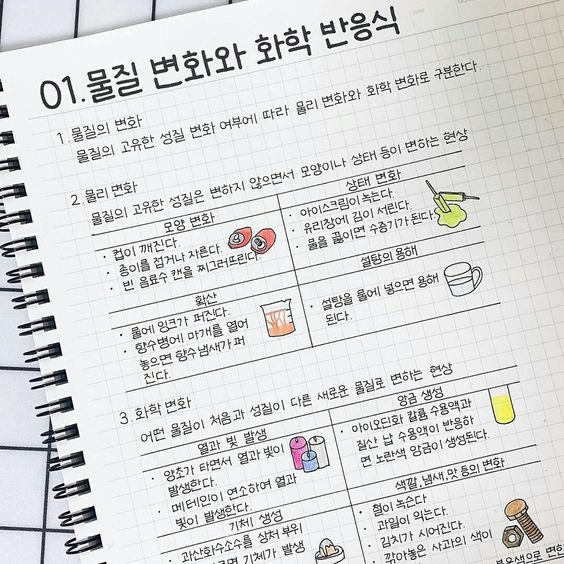 01. 물질 변화와 화학 반응식
1. 물질의 변화
물질의 고유한 성질 변화 여부에 따라 물리 변화와 화학 변화로 구분한다.
2. 물리 변화
물질의 고유한 성질은 변하지 않으면서 모양이나 상태 등이 변하는 현상
모양 변화
• 컵이 깨진다.
• 종이를 접거나 자른다.
• 빈 음료수 캔을 찌그러뜨린다.
상태 변화
• 아이스크림이 녹는다.
• 유리창에 김이 서린다.
• 물을 끓이면 수증기가 된다.
확산
• 물에 잉크가 퍼진다.
• 향수병에 마개를 열어
놓으면 향수 냄새가 퍼
진다.
설탕의 용해
• 설탕을 물에 넣으면 용해
된다.
3. 화학 변화
어떤 물질이 처음과 성질이 다른 새로운 물질로 변하는 현상
열과 빛 발생
• 양초가 타면서 열과 빛이
발생한다.
• 메테인이 연소하여 열과
빛이 발생한다.
앙금 생성
• 아이오딘화 칼륨 수용액과
질산 납 수용액이 반응하
면 노란색 앙금이 생성된다.
기체 생성
• 과산화수소수를 상처 부위
기체가 발생
색깔, 냄새, 맛 등의 변화
• 철이 녹슨다.
• 과일이 익는다.
• 김치가 시어진다.
• 깎아놓은 사과의 색이
변한